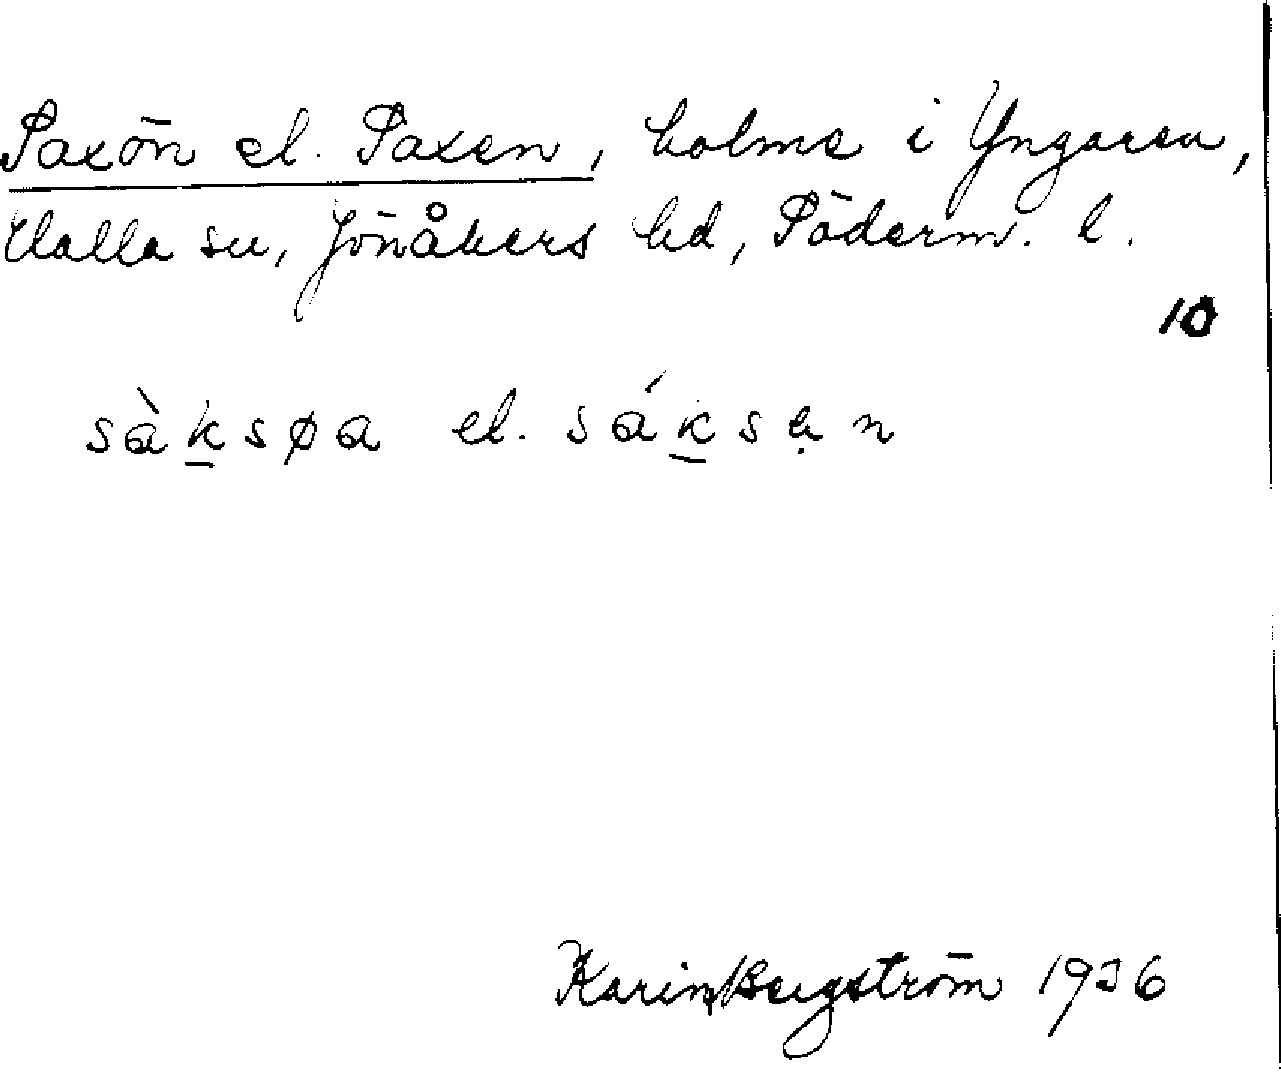 Saxön el. Saxen, holme i Yngaren,
Halla sn, Jönåkers hd, Söderm. l.
10
sàksøa el. sáksạn
Karin Bergström 1936